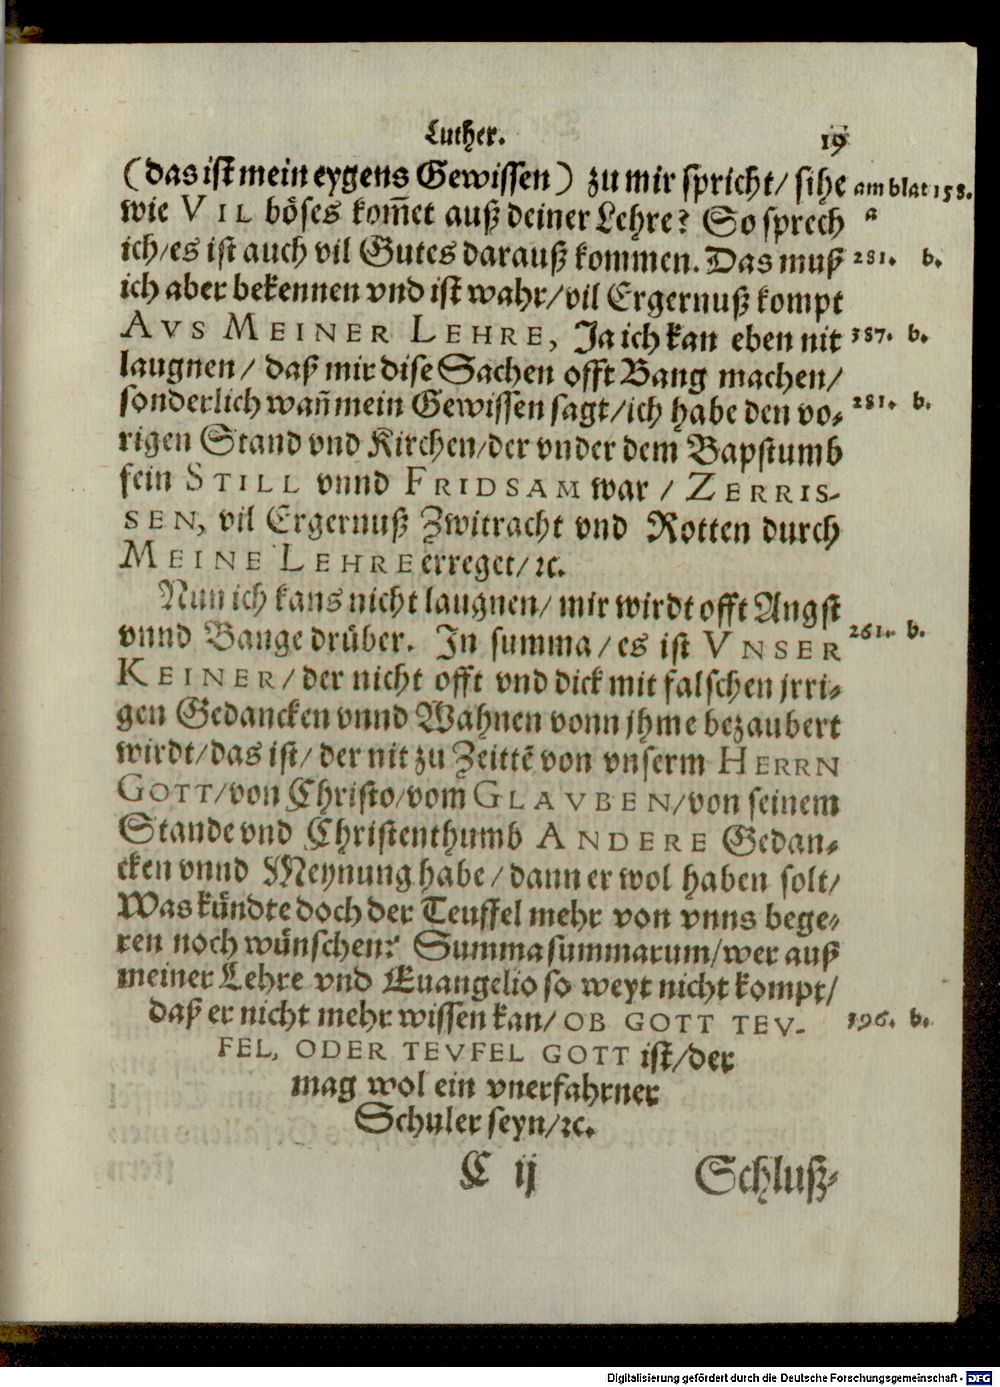 Luther. 19
(das ist mein eygens Gewissen) zu mir spricht/ sihe am blat 158.
wie VIL böses kom̃et auß deiner Lehre? So sprech a
ich/es ist auch vil Gutes darauß kommen. Das muß 281. b.
ich aber bekennen vnd ist wahr/vil Ergernuß kompt
AVS MEINER LEHRE, Ja ich kan eben nit 387. b.
laugnen/ daß mir dise Sachen offt Bang machen/
sonderlich wañ mein Gewissen sagt/ich habe den vo- 281. b.
rigen Stand vnd Kirchen/der vnder dem Bapstumb
fein STILL vnnd FRIDSAM war / ZERRIS-
SEN, vil Ergernuß Zwitracht vnd Rotten durch
MEINE LEHRE erreget/ ꝛc.
Nun ich kans nicht laugnen/ mir wirdt offt Angst
vnnd Bange drüber. In summa/es ist VNSER 261. b.
KEINER/ der nicht offt vnd dick mit falschen jrri-
gen Gedancken vnnd Wahnen vonn jhme bezaubert
wirdt/das ist/ der nit zu Zeittẽ von vnserm HERRN
GOTT/von Christo/vom GLAVBEN/von seinem
Stande vnd Christenthumb ANDERE Gedan-
cken vnnd Meynung habe/ dann er wol haben solt/
Was kündte doch der Teuffel mehr von vnns bege-
ren noch wünschen? Summa summarum/wer auß
meiner Lehre vnd Euangelio so weyt nicht kompt/
daß er nicht mehr wissen kan/ OB GOTT TEV- 396. b.
FEL, ODER TEVFEL GOTT ist/der
mag wol ein vnerfahrner
Schuler seyn/ꝛc.
C ij Schluß-
Digitalisierung gefördert durch die Deutsche Forschungsgemeinschaft - DFG